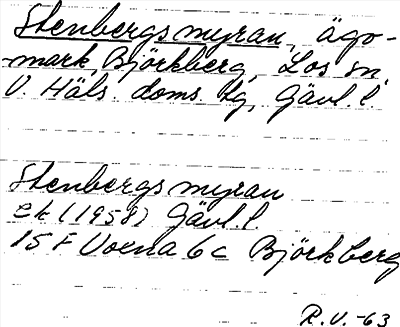 Stenbergsmyran, ägo-
mark, Björkberg, Los sn,
V. Häls. doms. tg, Gävl. l.
Stenbergsmyran
ek (1958) Gävl. l.
15 F Voxna 6c Björkberg
R.V.-63